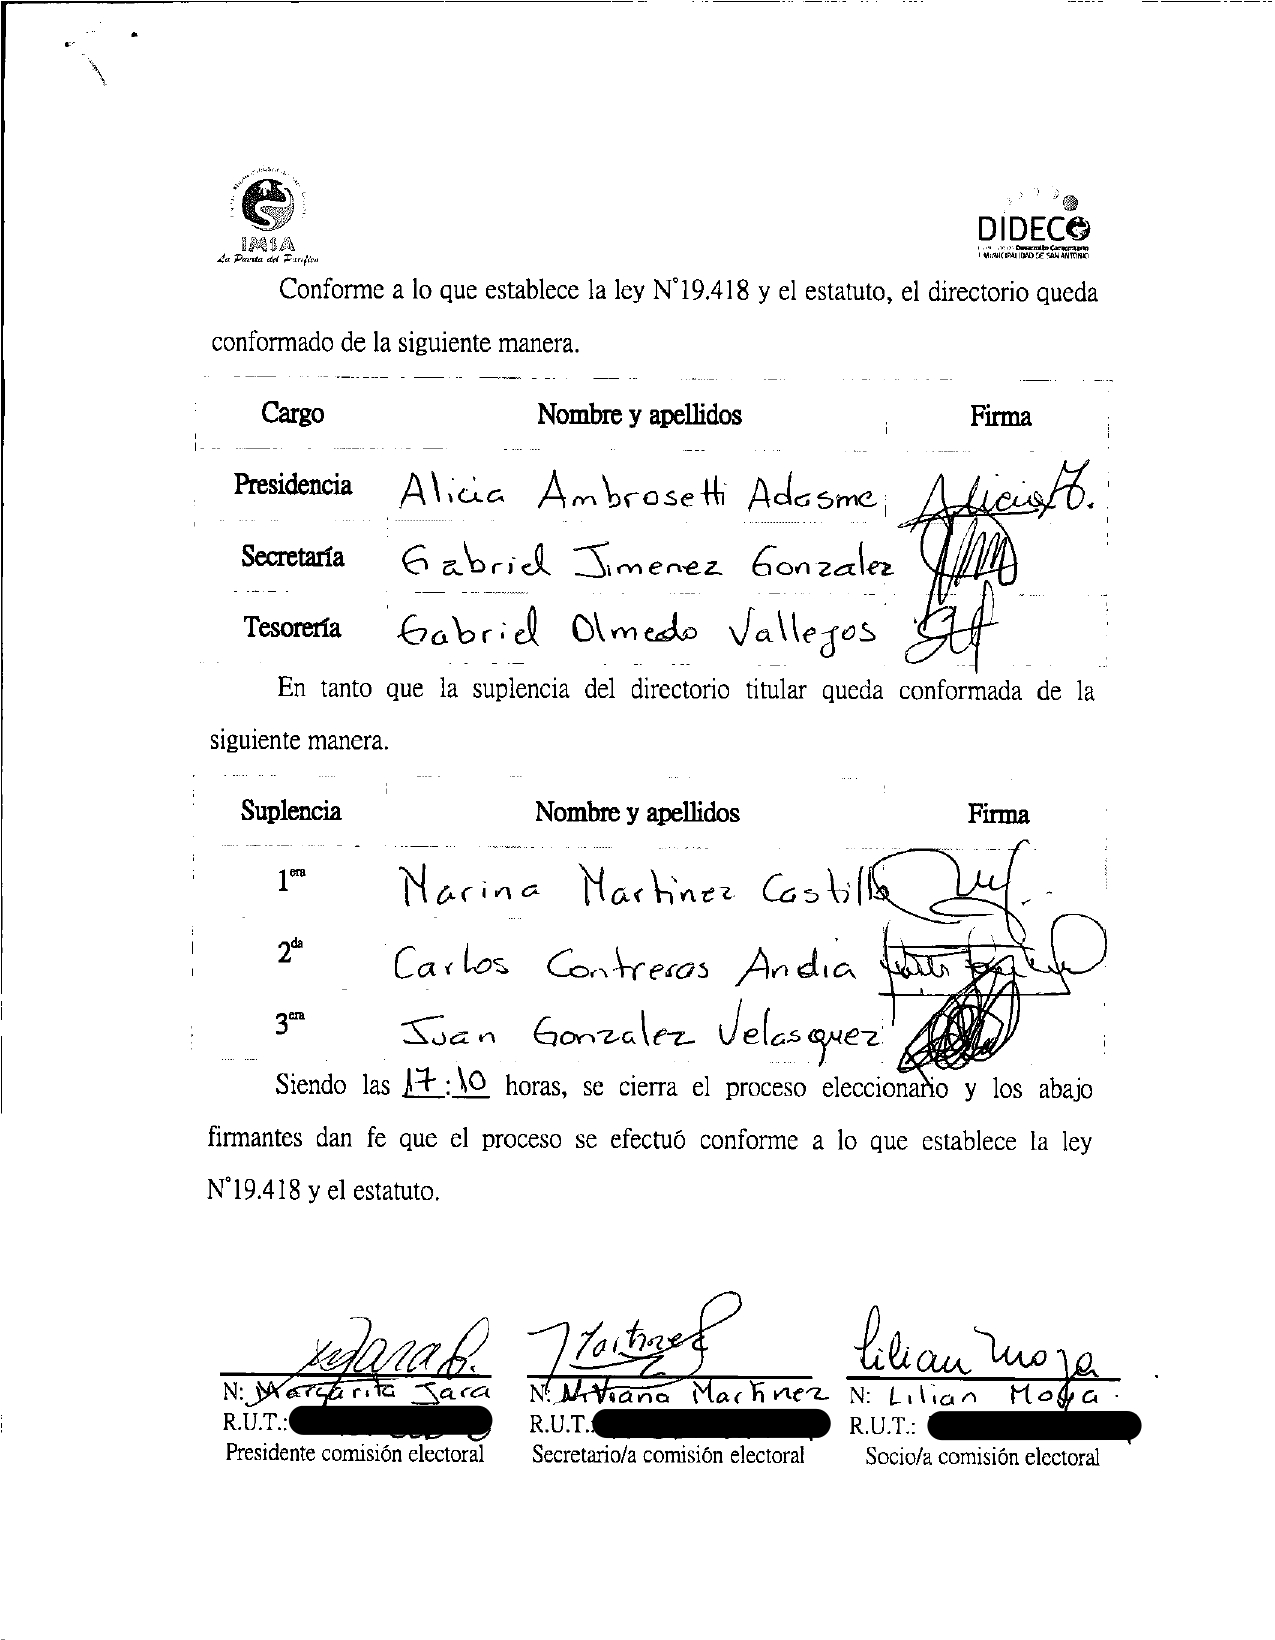 IMSA
La Puerta del Pacífico
DIDECO
Desarrollo Comunitario
I. MUNICIPALIDAD DE SAN ANTONIO
Conforme a lo que establece la ley N°19.418 y el estatuto, el directorio queda
conformado de la siguiente manera.
Cargo Nombre y apellidos Firma
Presidencia Alicia Ambrosetti Adasme Alicia A.
Secretaría Gabriel Jimenez Gonzalez
Tesorería Gabriel Olmedo Vallejos
En tanto que la suplencia del directorio titular queda conformada de la
siguiente manera.
Suplencia Nombre y apellidos Firma
1era Marina Martinez Castillo
2da Carlos Contreras Andia
3era Juan Gonzalez Velasquez
Siendo las 17:10 horas, se cierra el proceso eleccionario y los abajo
firmantes dan fe que el proceso se efectuó conforme a lo que establece la ley
N°19.418 y el estatuto.
Lilian Moya
N: Margarita Jara N: Viviana Martinez N: Lilian Moya
R.U.T.: R.U.T.: R.U.T.:
Presidente comisión electoral Secretario/a comisión electoral Socio/a comisión electoral